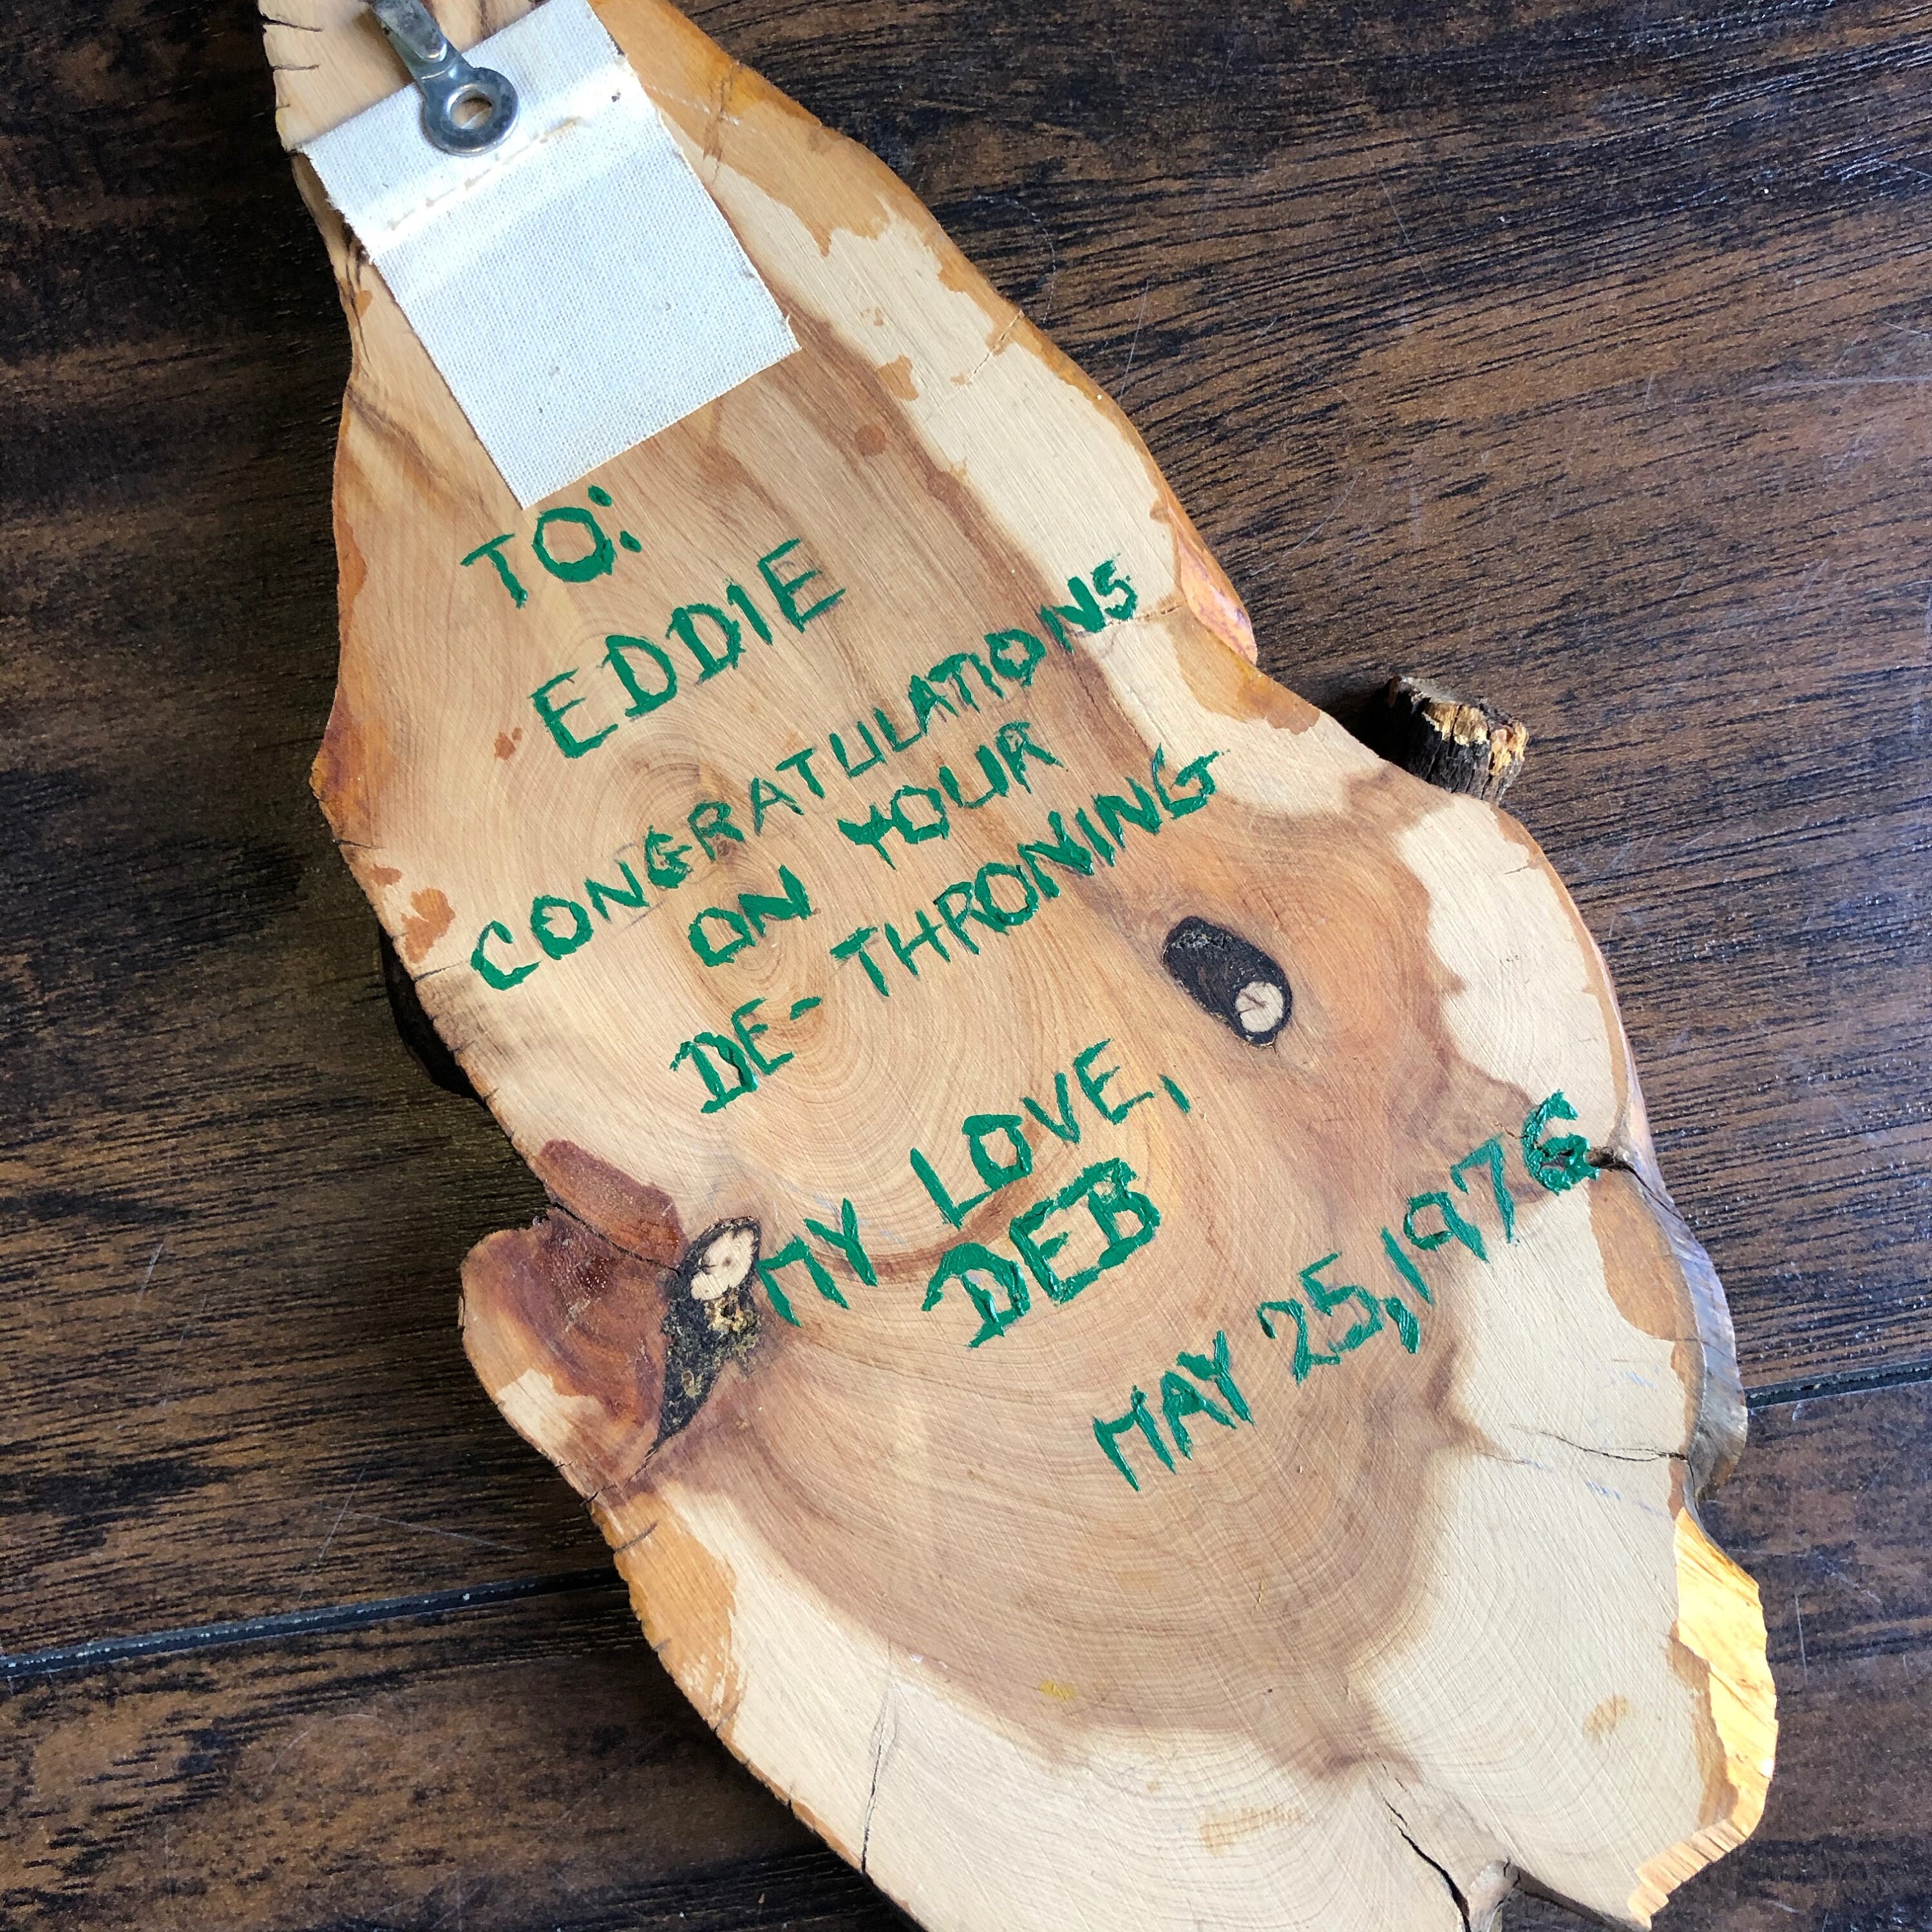 TO:
EDDIE
CONGRATULATIONS
ON YOUR
DE-THRONING
MY LOVE,
DEB
MAY 25, 1976